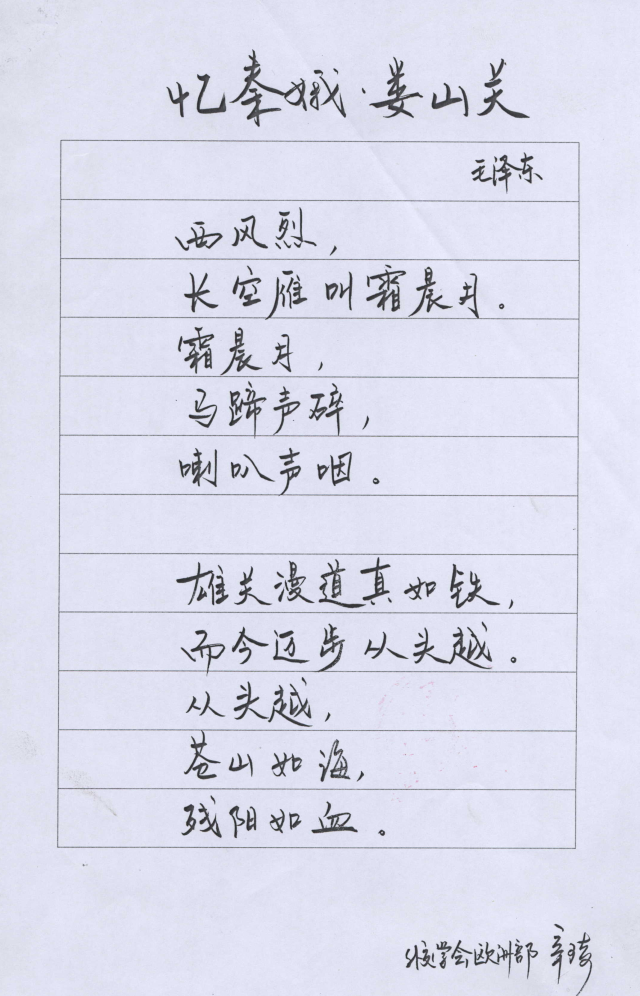 忆秦娥·娄山关
毛泽东
西风烈，
长空雁叫霜晨月。
霜晨月，
马蹄声碎，
喇叭声咽。
雄关漫道真如铁，
而今迈步从头越。
从头越，
苍山如海，
残阳如血。
学会欧洲部 辛琦